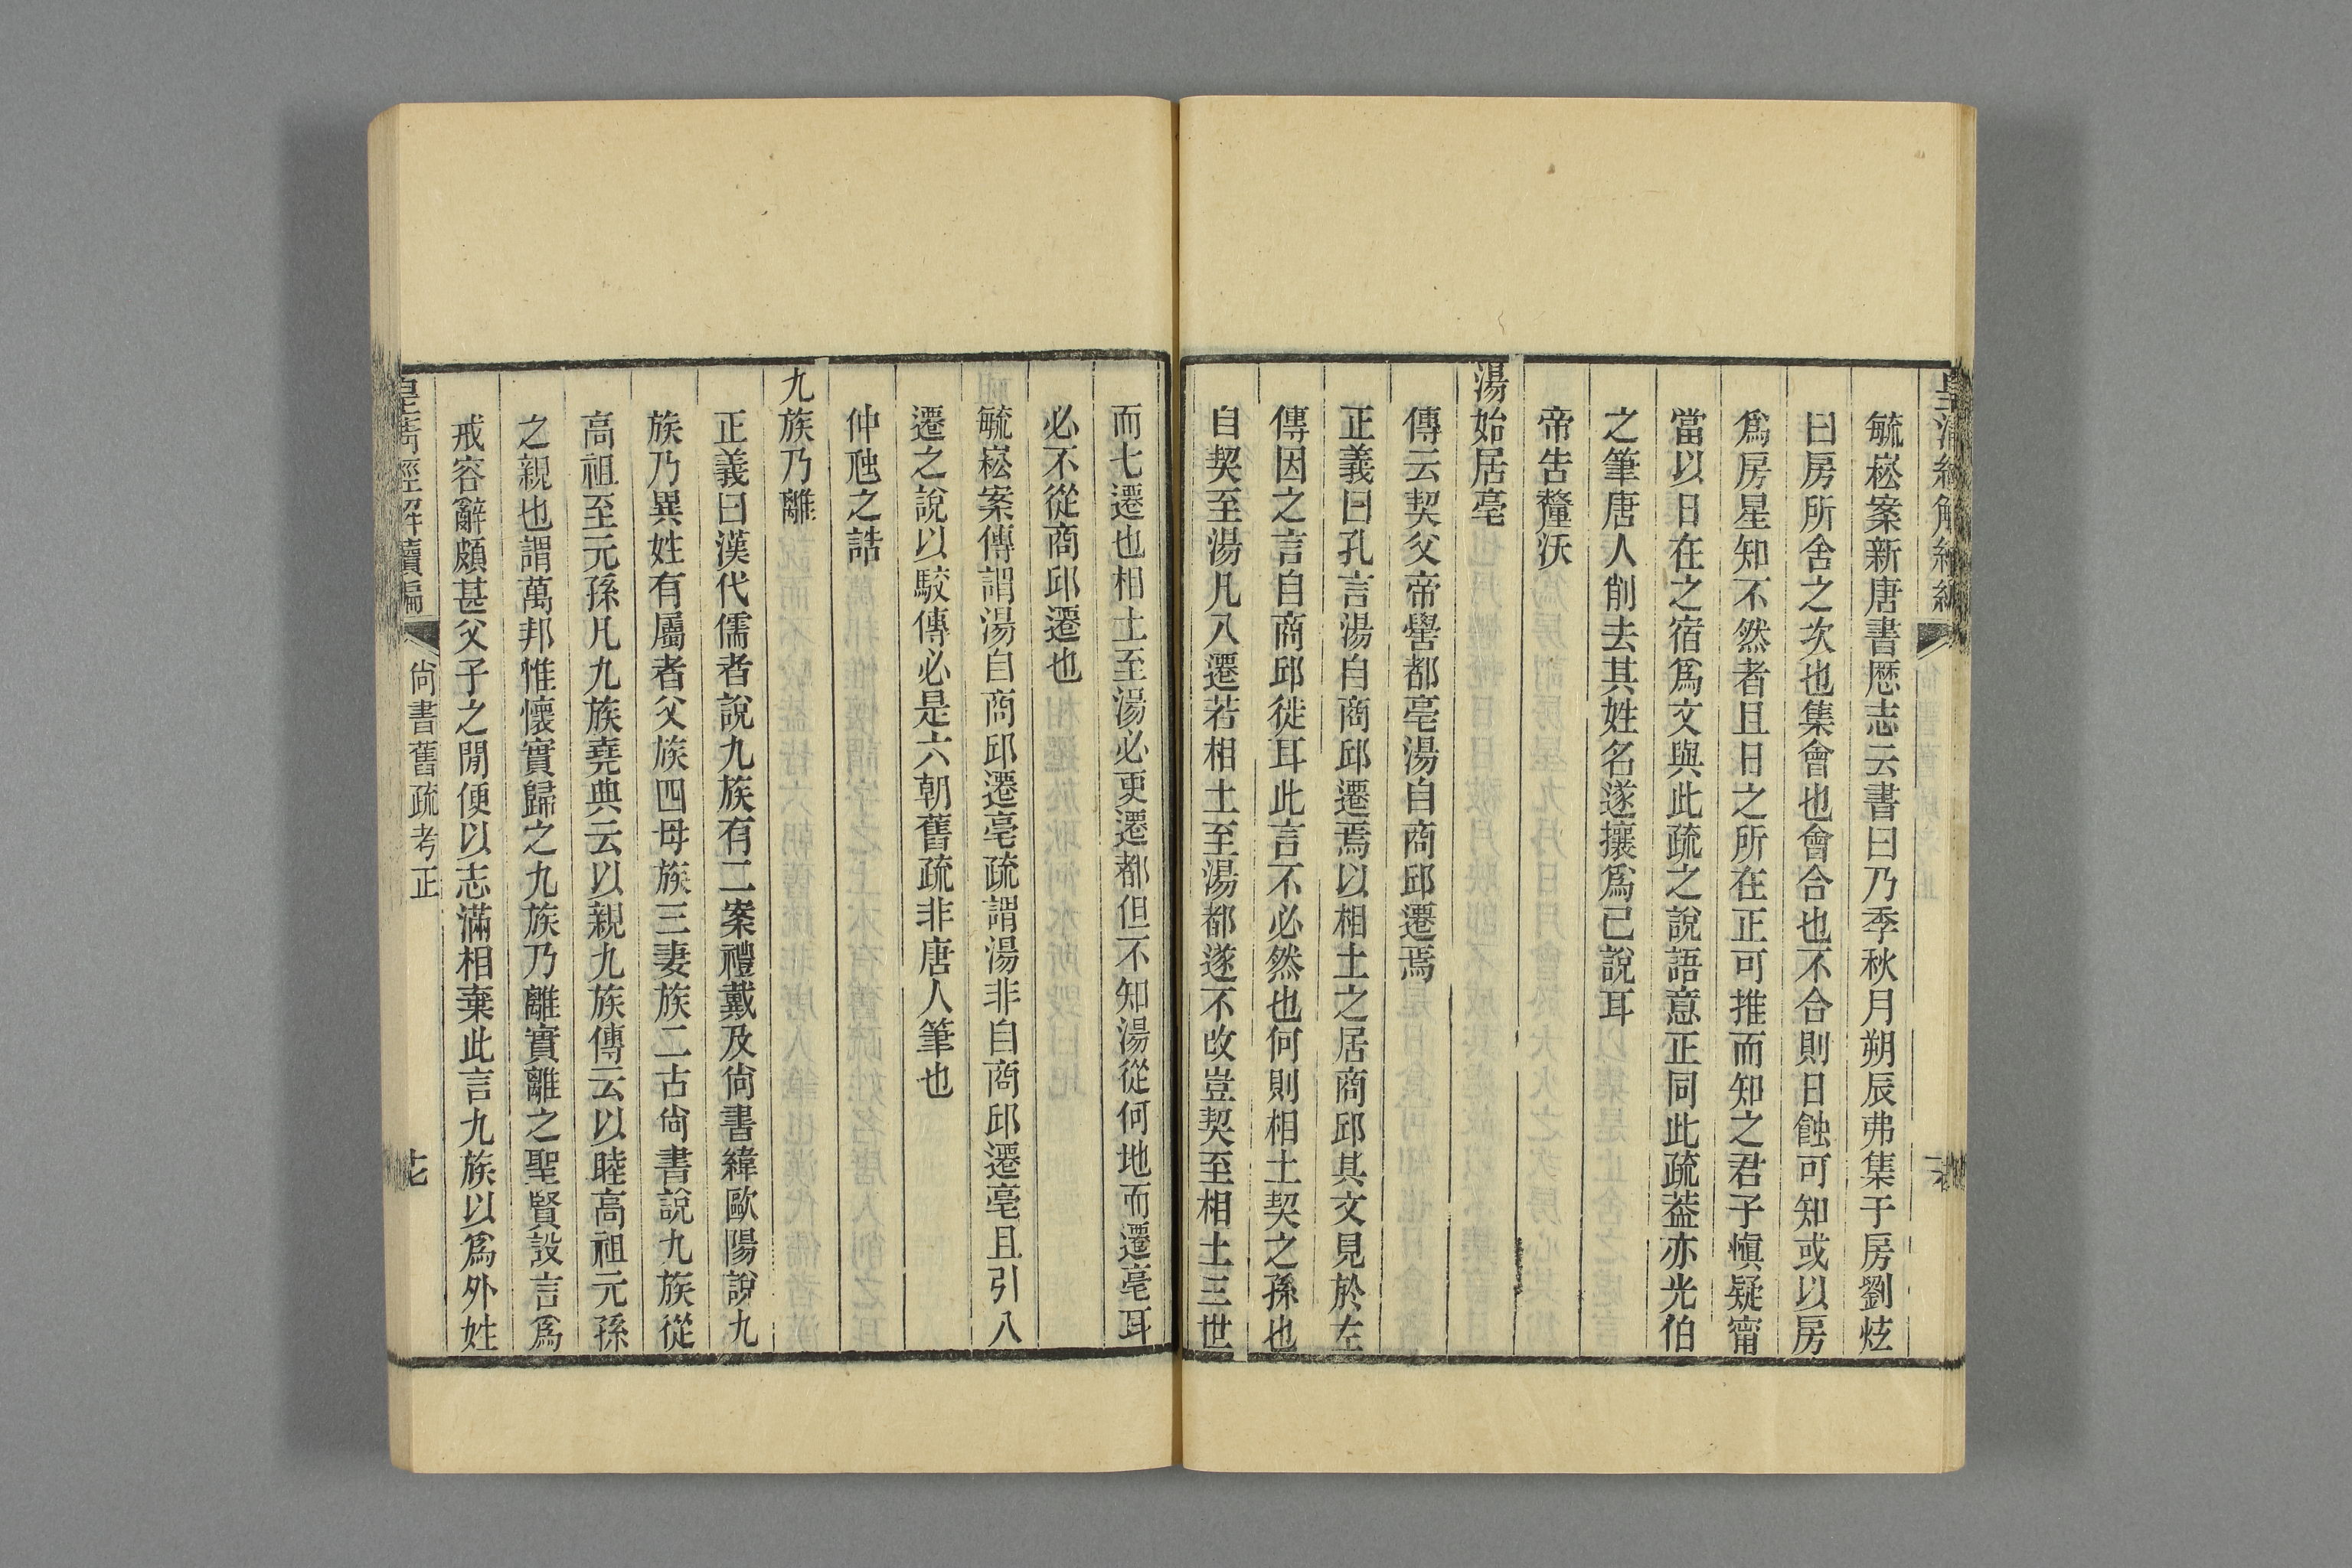 毓崧案新唐書厯志云書曰乃季秋月朔辰弗集于房劉炫
曰房所舍之次也集會也會合也不合則日蝕可知或以房
爲房星知不然者且日之所在正可推而知之君子愼疑甯
當以日在之宿爲文與此疏之說語意正同此疏葢亦光伯
之筆唐人削去其姓名遂攘爲己說耳
帝告釐沃
湯始居亳
傳云契父帝嚳都亳湯自商邱遷焉
正義曰孔言湯自商邱遷焉以相土之居商邱其文見於左
傳因之言自商邱徙耳此言不必然也何則相土契之孫也
自契至湯凡八遷若相土至湯都遂不改豈契至相土三世
而七遷也相土至湯必更遷都但不知湯從何地而遷亳耳
必不從商邱遷也
毓崧案傳謂湯自商邱遷亳疏謂湯非自商邱遷亳且引八
遷之說以駮傳必是六朝舊疏非唐人筆也
仲虺之誥
九族乃離
正義曰漢代儒者說九族有二案禮戴及尙書緯歐陽說九
族乃異姓有屬者父族四母族三妻族二古尙書說九族從
高祖至元孫凡九族堯典云以親九族傳云以睦高祖元孫
之親也謂萬邦惟懷實歸之九族乃離實離之聖賢設言爲
戒容辭頗甚父子之閒便以志滿相棄此言九族以爲外姓
皇淸經解續編
尙書舊疏考正